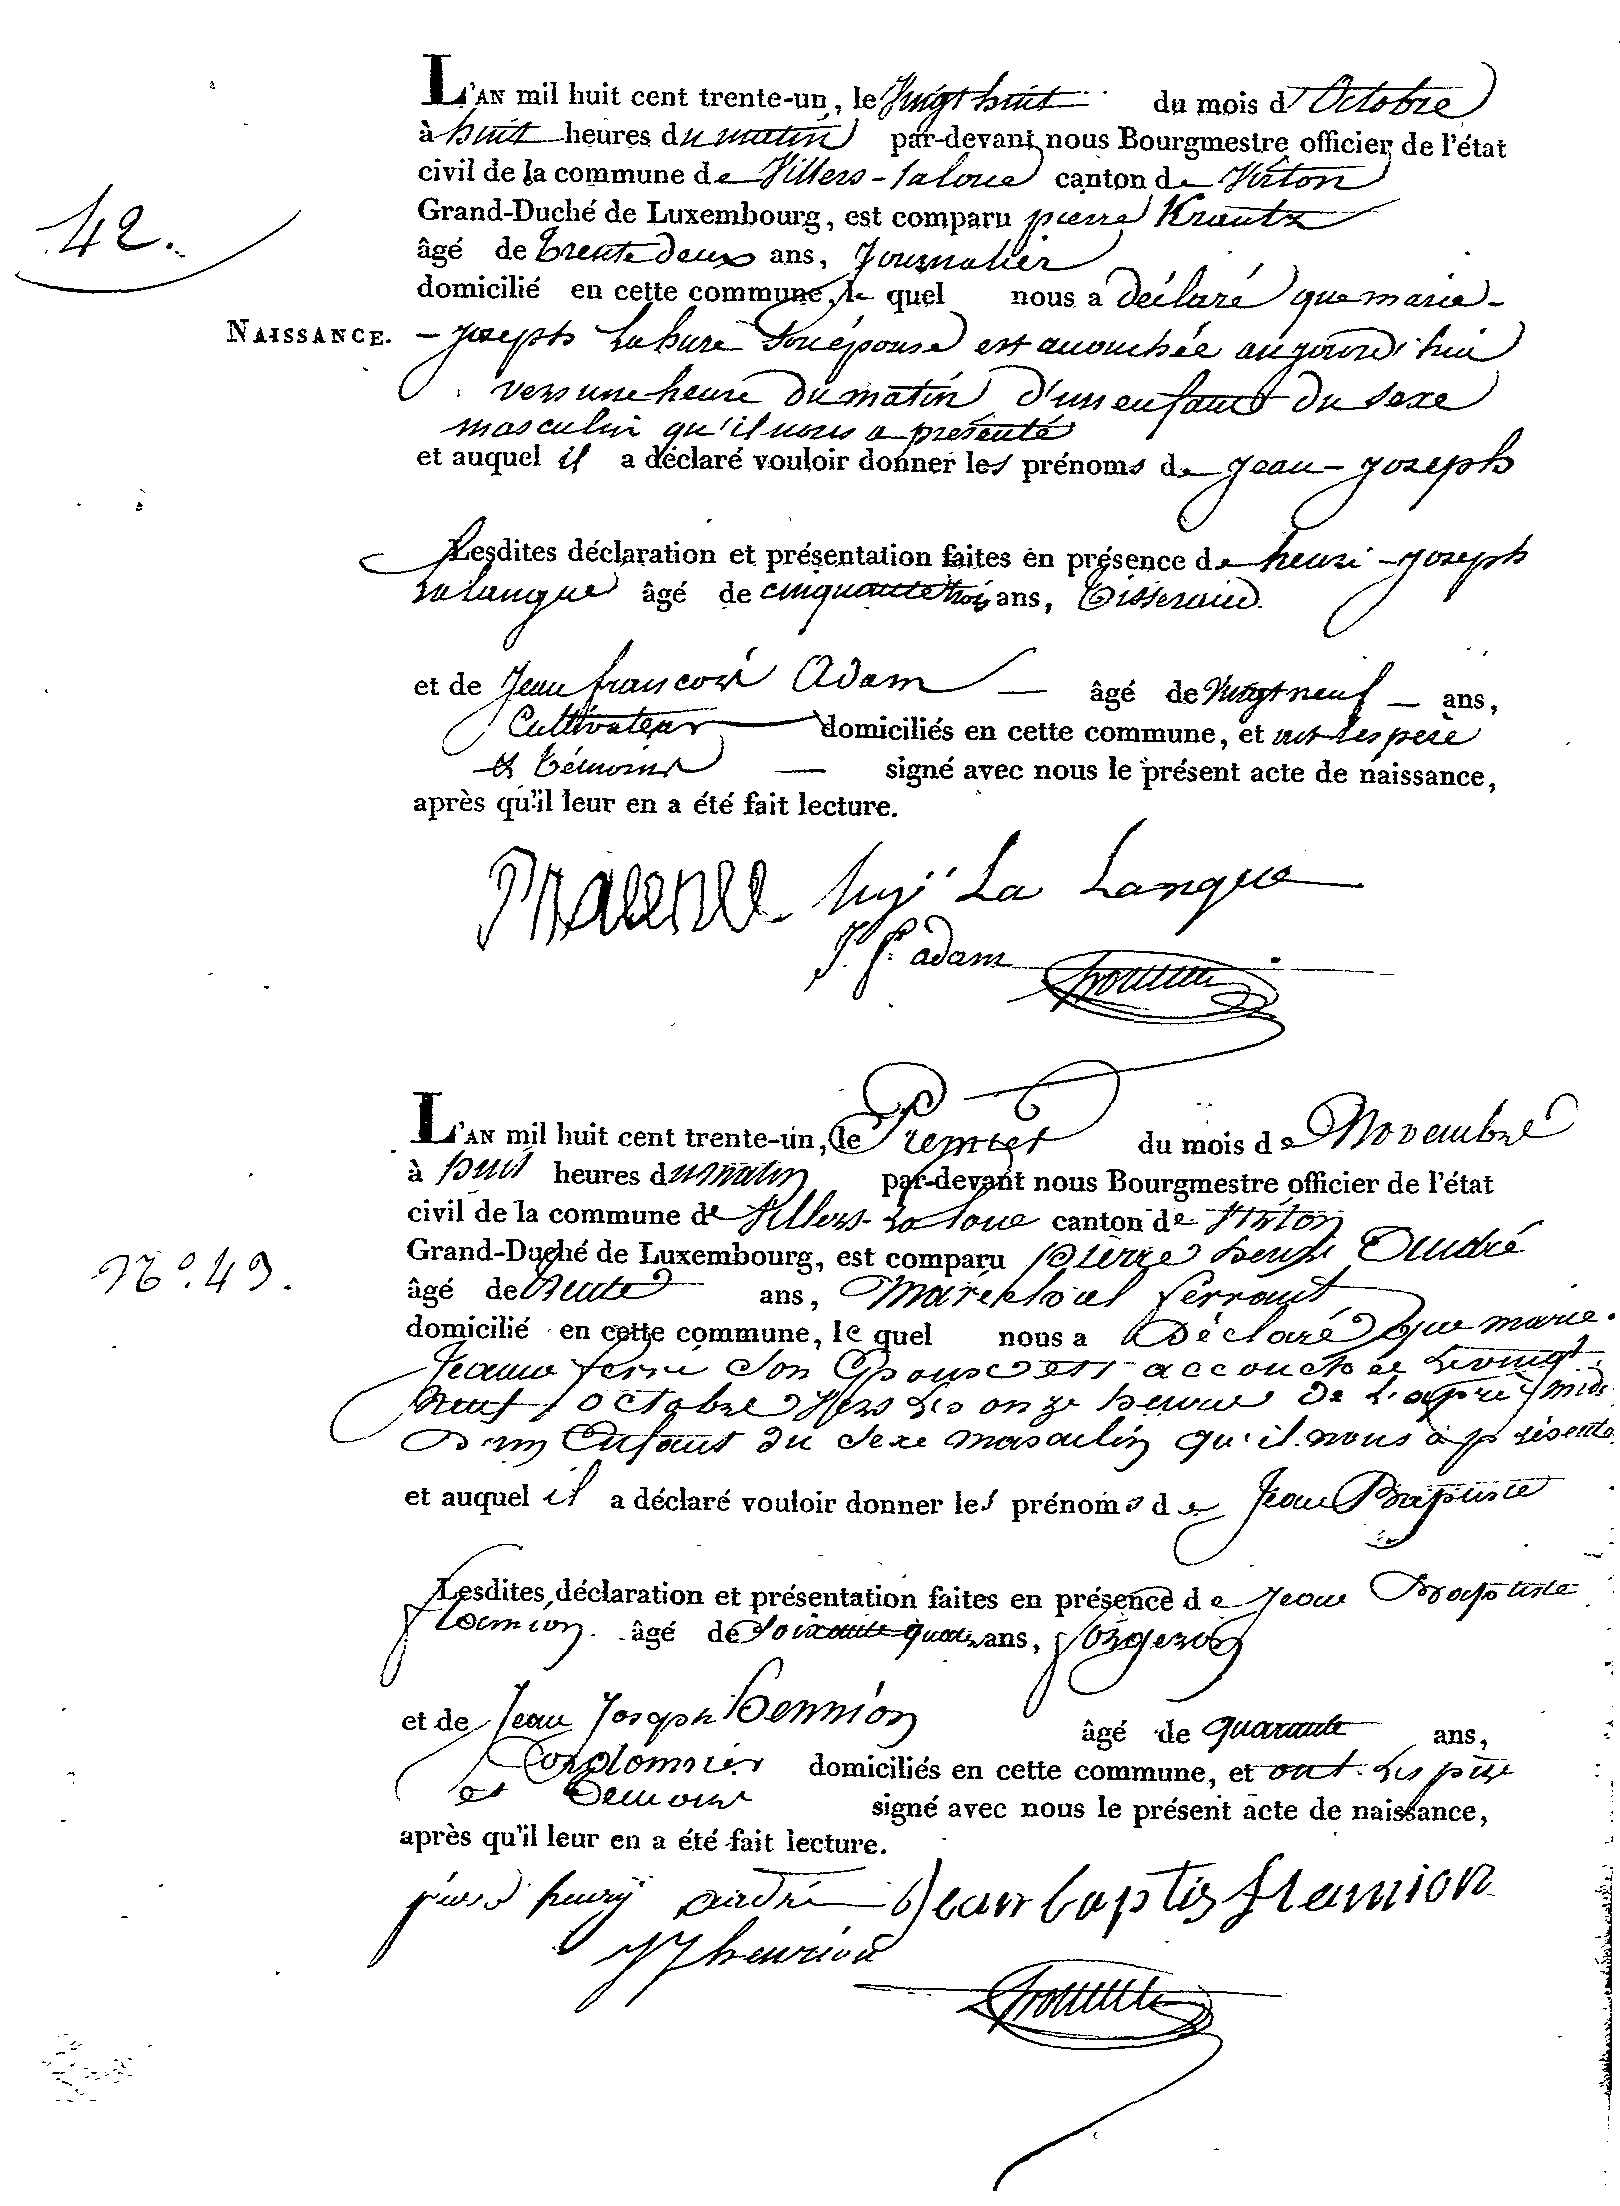 L'AN mil huit cent trente-un, le Vingt huit du mois d'Octobre
à huit heures du matin par-devant nous Bourgmestre officier de l'état
civil de la commune de Villers-la loue canton de Virton
42.
Grand-Duché de Luxembourg, est comparu pierre Krautz
âgé de trente deux ans, Journalier
domicilié en cette commune, le quel nous a déclaré que marie-
NAISSANCE.
- joseph Lahure Son épouse est accouchée aujourd'hui
vers une heure du matin d'un enfant du sexe
masculin qu'il nous a présenté
et auquel il a déclaré vouloir donner les prénoms de Jean-Joseph
Lesdites déclaration et présentation faites en présence de henri-Joseph
Lalangue âgé de cinquante trois ans, Tisserand.
et de Jean françois Adam — âgé de Vingt neuf — ans,
Cultivateur domiciliés en cette commune, et ont les père
et témoins — signé avec nous le présent acte de naissance,
après qu'il leur en a été fait lecture.
La Langue
J. f. adam
L'AN mil huit cent trente-un, le Premier du mois de Novembre
à huit heures du matin par-devant nous Bourgmestre officier de l'état
civil de la commune de Villers-la loue canton de Virton
Grand-Duché de Luxembourg, est comparu Pierre henri André
N°. 43.
âgé de trente ans, Maréchal ferrant
domicilié en cette commune, le quel nous a Déclaré que marie.
Jeanne ferré Son Epouse est accouchée Le vingt
neuf octobre Vers Les onze heure de L'apres midi
D'un Enfant du Sexe masculin qu'il nous a présenté
et auquel il a déclaré vouloir donner les prénoms de Jean Baptiste
Lesdites déclaration et présentation faites en présence de Jean Baptiste
flamion. âgé de Soixante quatre ans, forgeron
et de Jean Joseph hennion âgé de quarante ans,
Cordonnier domiciliés en cette commune, et ont Les père
et temoins signé avec nous le présent acte de naissance,
après qu'il leur en a été fait lecture.
henry andré Jean baptis flamion